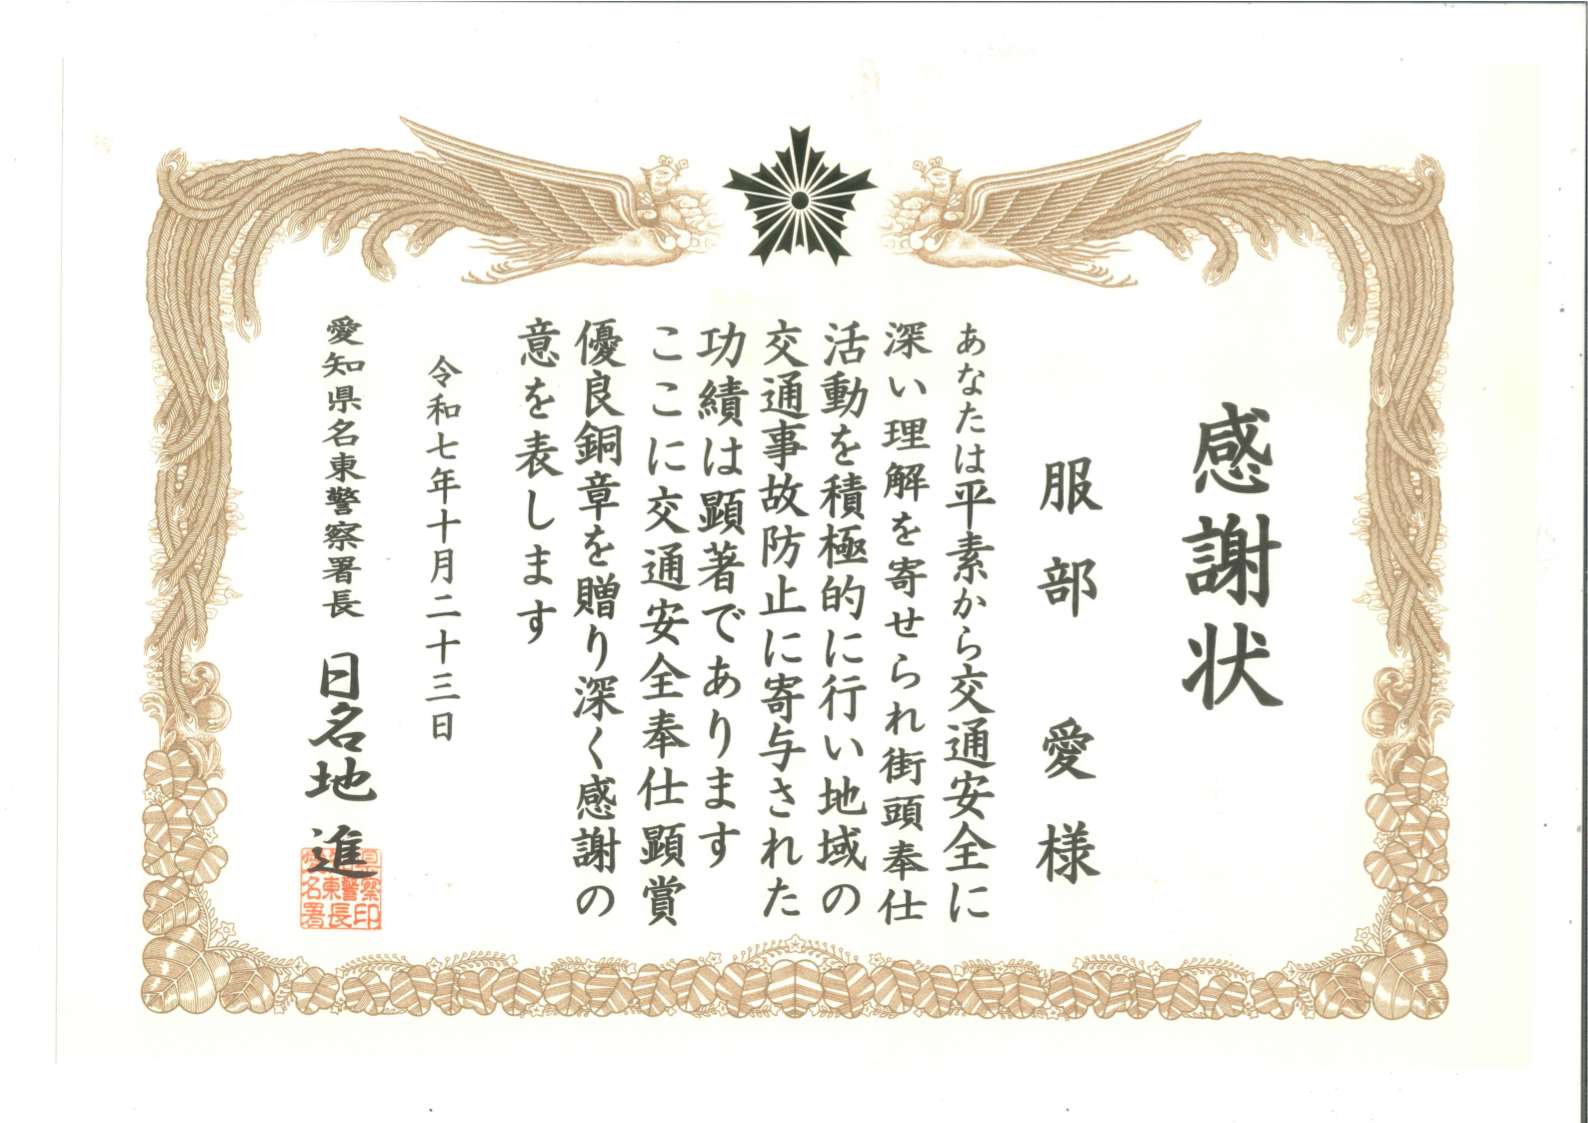 感謝状
服部 愛 様
あなたは平素から交通安全に
深い理解を寄せられ街頭奉仕
活動を積極的に行い地域の
交通事故防止に寄与された
功績は顕著であります
ここに交通安全奉仕顕賞
優良銅章を贈り深く感謝の
意を表します
令和七年十月二十三日
愛知県名東警察署長 日名地 進